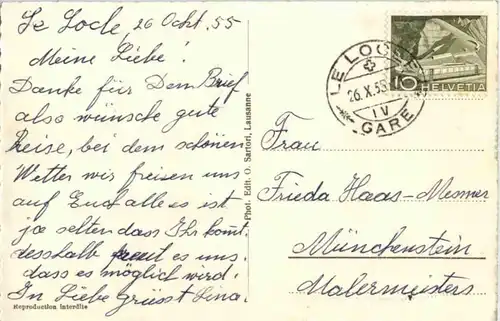 Le Locle, 26 Okt. 55
Meine Liebe!
Danke für Dem Brief
also wünsche gute
Reise, bei dem schönen
Wetter wir freisen uns
auf Euch alle es ist
ja selten dass Ihr komt.
desshalb freut es uns,
dass es möglich wird.
In Liebe grüsst Lina.
Reproduction interdite
Phot. Edit. O. Sartori, Lausanne
LE LOCLE
26.X.55
IV
GARE
10 HELVETIA
Frau
Frieda Haas-Mesmer
Münchenstein
Malermeisters